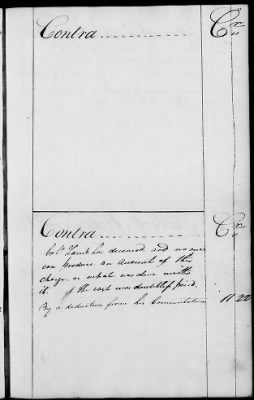 Contra Cr
Contra Cr
Col. Lamb has deceased and no one
can produce an Account of this
charge or what was done with
it. If the cost was doubtless paid.
By a deduction from his Commutation 11 22